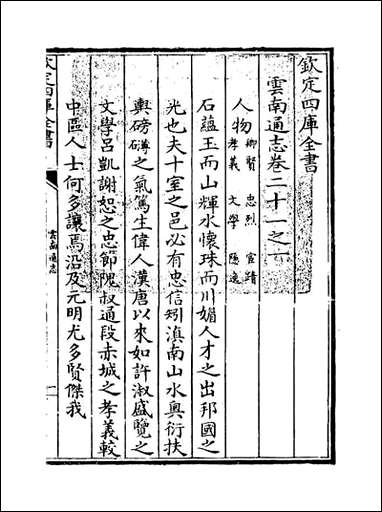 欽定四庫全書
雲南通志卷二十一之一
人物 鄉賢 忠烈 宦蹟
孝義 文學 隱逸
石蘊玉而山輝水懷珠而川媚人才之出邦國之
光也夫十室之邑必有忠信矧滇南山水奧衍扶
輿磅礴之氣篤生偉人漢唐以來如許淑盛覽之
文學呂凱謝恕之忠節隗叔通段赤城之孝義較
中區人士何多讓焉沿及元明尤多賢傑我
欽定四庫全書
雲南通志
一